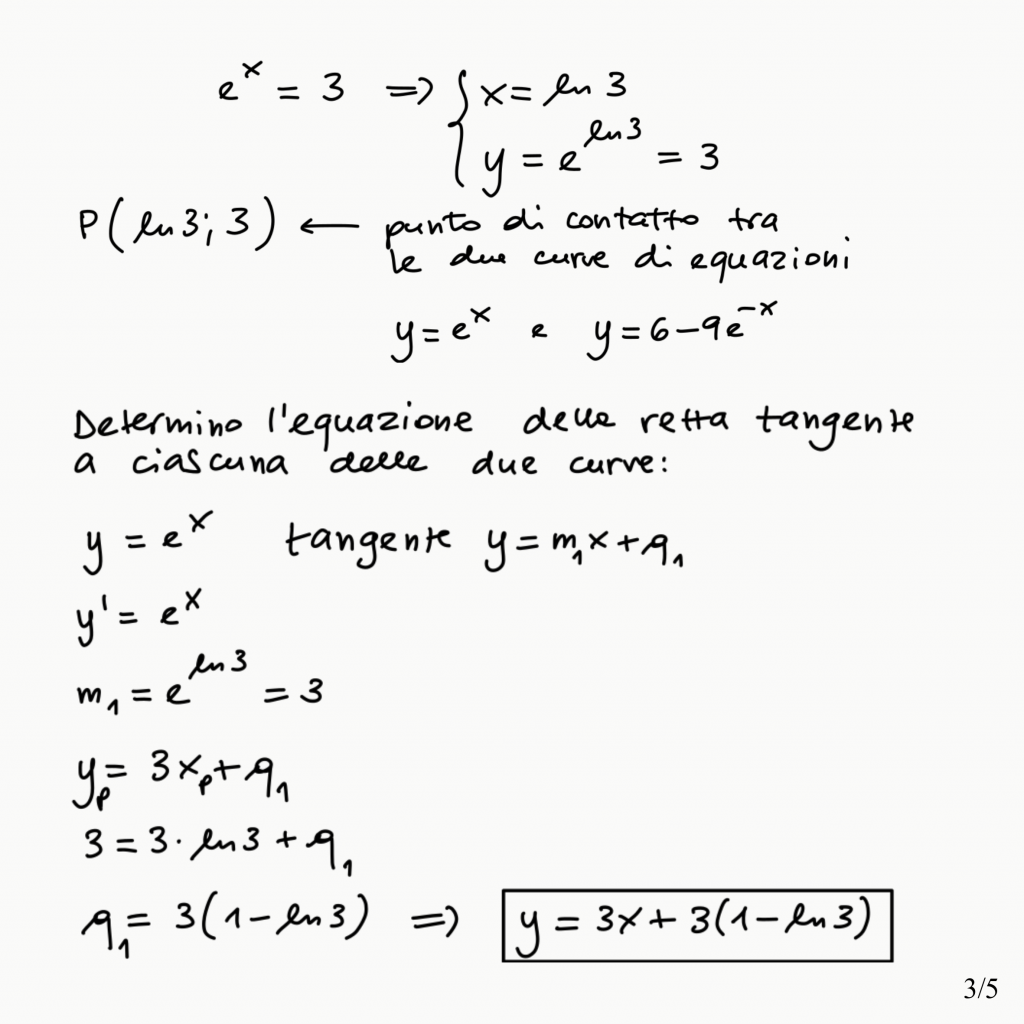 eˣ = 3 ⇒ { x = ln 3
y = e^{ln 3} = 3
P(ln 3; 3) ← punto di contatto tra
le due curve di equazioni
y = eˣ e y = 6 − 9e^{−x}
Determino l'equazione delle retta tangente
a ciascuna delle due curve:
y = eˣ tangente y = m₁x + q₁
y' = eˣ
m₁ = e^{ln 3} = 3
yₚ = 3xₚ + q₁
3 = 3 · ln 3 + q₁
q₁ = 3(1 − ln 3) ⇒ y = 3x + 3(1 − ln 3)
3/5